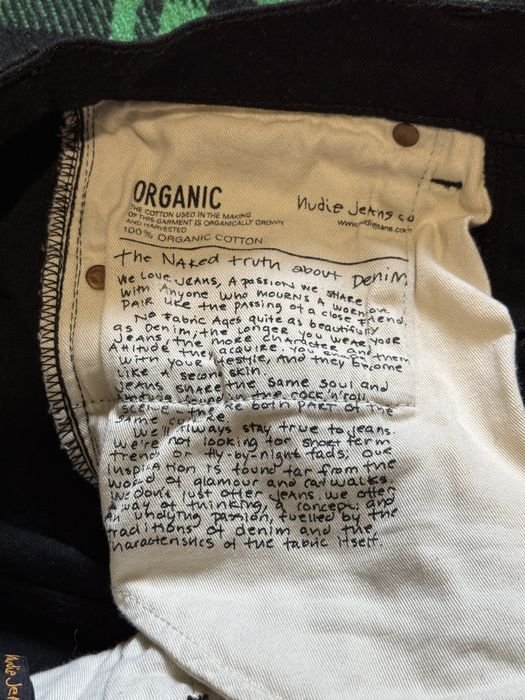 ORGANIC
THE COTTON USED IN THE MAKING
OF THIS GARMENT IS ORGANICALLY GROWN
AND HARVESTED
100% ORGANIC COTTON
Nudie Jeans co
www.nudiejeans.com
the Naked truth about Denim
We love jeans, a passion we share
with anyone who mourns a worn out
pair like the passing of a close friend.
No fabric ages quite as beautifully
as denim. The longer you wear your
jeans, the more character and
attitude they acquire. You them
with your lifestyle, and they become
like a second skin.
Jeans share the same soul and
the rock'n'roll
scene. they're both part of the
same
We'll always stay true to jeans.
We're not looking for short term
trend or fly-by-night fads; our
inspiration is found far from the
world of glamour and catwalks.
We don't just offer jeans. We offer
a way of thinking, a concept, and
an undying passion, fuelled by the
traditions of denim and the
characteristics of the fabric itself.
Nudie Je